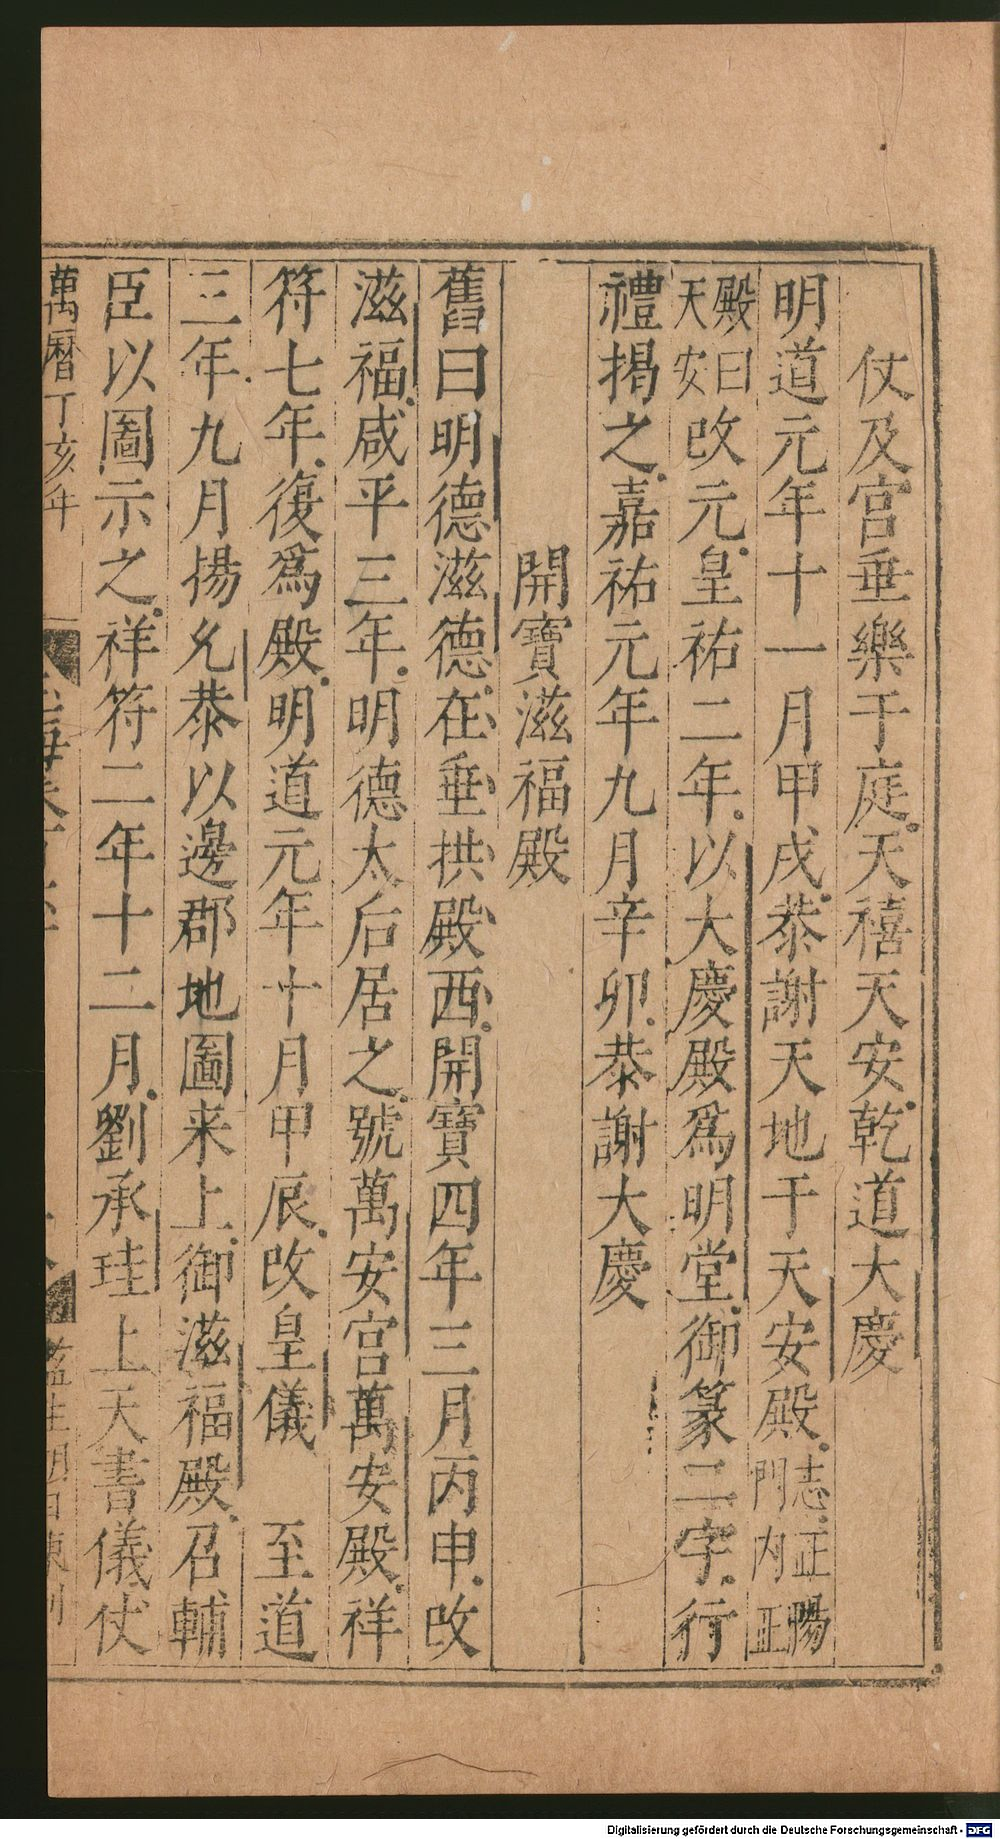 仗及宫垂樂于庭天禧天安乾道大慶
明道元年十一月甲戌恭謝天地于天安殿志正陽門内正
殿曰天安改元皇祐二年以大慶殿爲明堂御篆二字行
禮揭之嘉祐元年九月辛卯恭謝大慶
開寶滋福殿
舊曰明德滋德在垂拱殿西開寶四年三月丙申改
滋福咸平三年明德太后居之號萬安宫萬安殿祥
符七年復爲殿明道元年十月甲辰改皇儀 至道
三年九月揚允恭以邊郡地圖来上御滋福殿召輔
臣以圖示之祥符二年十二月劉承珪上天書儀仗
萬曆丁亥年
Digitalisierung gefördert durch die Deutsche Forschungsgemeinschaft - DFG